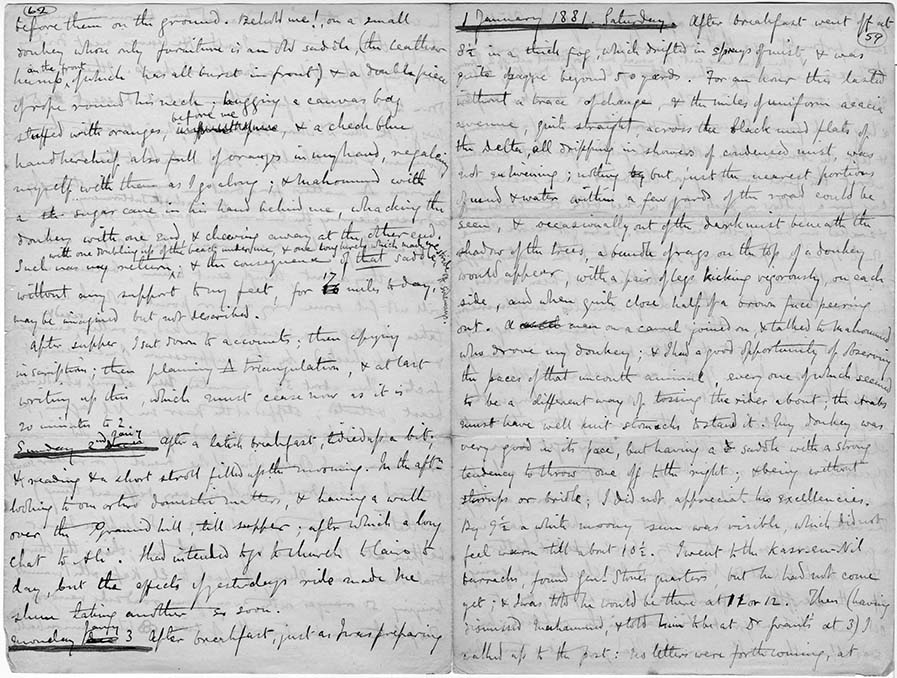 62
before them on the ground. Behold me!, on a small
donkey whose only furniture is an old saddle (the leathern
hump, on the front of which has all burst in front) & a double piece
of rope round his neck; hugging a canvas bag
stuffed with oranges, before me, & a check blue
handkerchief also full of oranges in my hand, regaling
myself with them as I go along; & Mahomed with
a sugar cane in his hand behind me, whacking the
donkey with one end, & chewing away at the other end.
with one doubling up of the beast under me, & one long
Such was my return; & the consequence of that saddle
without any support to my feet, for 17 miles today,
may be imagined but not described.
After supper, I sat down to accounts; then copying
inscription; then planning Δ triangulation, & at last
writing up this, which must cease now as it is
20 minutes to 2.
Sunday 2nd Jany After a late breakfast tidied up a bit.
& reading & a short stroll filled up the morning. In the aftn
looking to one or two domestic matters, & having a walk
over the Pyramid hill, till supper: after which a long
chat to Ali. I had intended to go to church to Cairo to
day, but the effects of yesterday's ride made me
shun taking another so soon.
Monday Jany 3 After breakfast, just as I was preparing
1 January 1881. Saturday. After breakfast went off at
59
8½ in a thick fog, which drifted in sprays of mist, & was
quite opaque beyond 50 yards. For an hour this lasted
without a trace of change, & the miles of uniform acacia
avenue, quite straight across the black mud flats of
the delta, all dripping in showers of condensed mist, was
not enlivening; nothing but just the nearest portions
of mud & water within a few yards of the road could be
seen, & occasionally out of the dark mist beneath the
shadow of the trees, a bundle of rags on the top of a donkey
would appear, with a pair of legs kicking vigorously, on each
side, and when quite close half of a brown face peering
out. A man on a camel joined on & talked to Mahomed
who drove my donkey; & I had a good opportunity of observing
the paces of that uncouth animal, every one of which seemed
to be a different way of tossing the rider about; the Arabs
must have well knit stomachs to stand it. My donkey was
very good in its pace, but having a saddle with a strong
tendency to throw one off to the right; & being without
stirrups or bridle, I did not appreciate his excellencies.
By 9½ a white moony sun was visible, which did not
feel warm till about 10½. I went to the Kasr-en-Nil
barracks, found Genl Stone's quarters but he had not come
yet; & I was told he would be there at 11 or 12. Then (having
dismissed Mahomed, & told him to be at Dr Grant's at 3) I
called up to the post: no letters were forthcoming, at